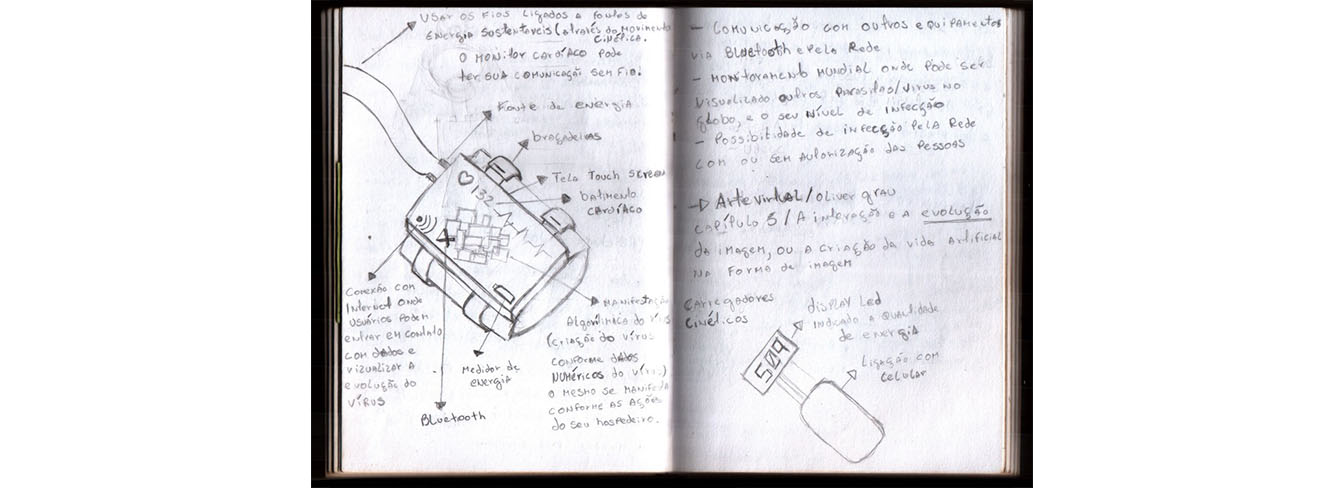 USAR OS FIOS LIGADOS A FONTES DE
ENERGIA SUSTENTÁVEIS (ATRAVÉS DO MOVIMENTO
CINÉTICA.
O MONITOR CARDÍACO PODE
TER SUA COMUNICAÇÃO SEM FIO.
FONTE DE ENERGIA
braçadeiras
Tela Touch Screen
batimento
CARDÍACO
132
Conexão com
Internet onde
usuários podem
entrar em contato
com dados e
vizualizar a
evolução do
VÍRUS
Bluetooth
Medidor de
energia
MANIFESTAÇÃO
Algorítmica do vírus
(criação do vírus
conforme dados
numéricos do vírus)
o mesmo se manifesta
conforme as ações
do seu hospedeiro.
- Comunicação com outros equipamentos
via Bluetooth e pela Rede
- Monitoramento mundial onde pode ser
visualizado outros parasitas/vírus no
globo, e o seu nível de infecção
- Possibilidade de infecção pela Rede
com ou sem autorização das pessoas
Arte virtual/oliver grau
Capítulo 5/A interação e a evolução
da imagem, ou a criação da vida artificial
na forma de imagem
Carregadores
Cinéticos
display Led
indicado a quantidade
de energia
509
Ligação com
celular